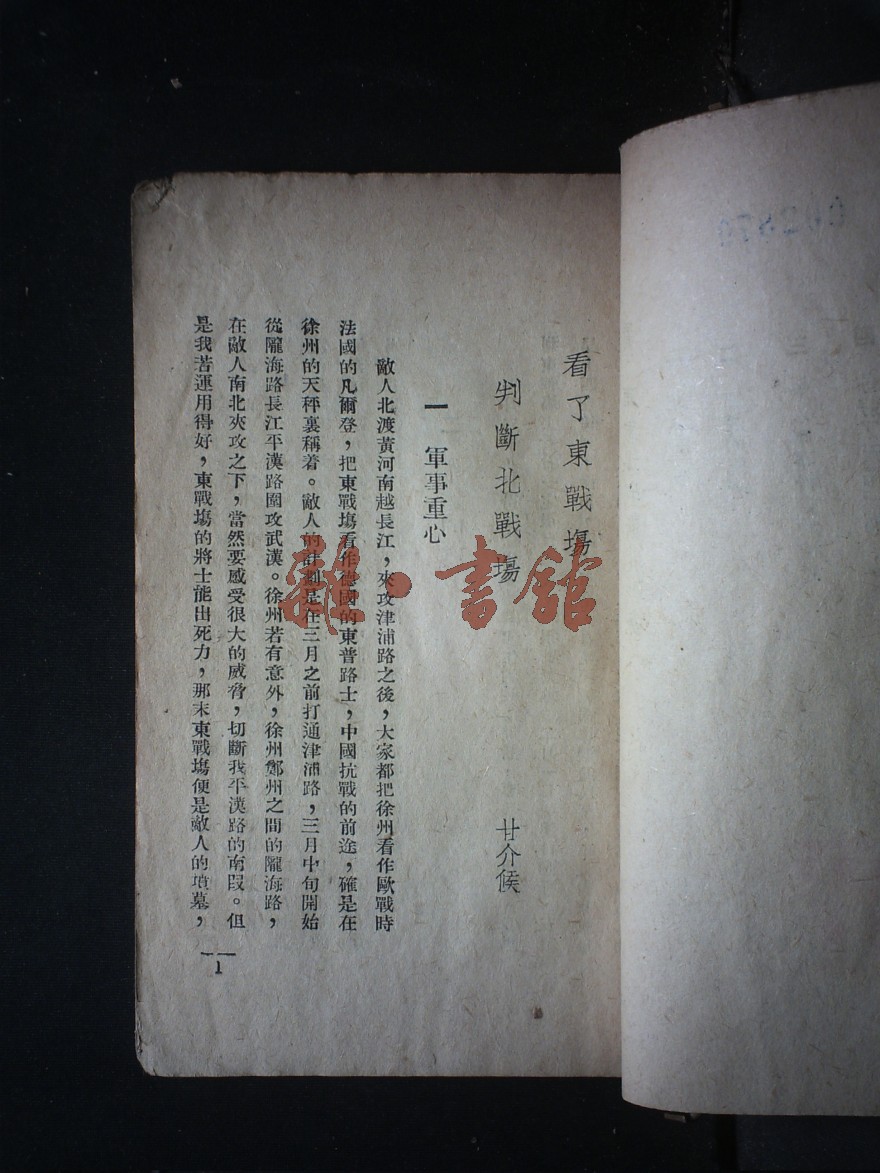 看了東戰塲
判斷北戰塲
甘介侯
一 軍事重心
敵人北渡黃河南越長江，夾攻津浦路之後，大家都把徐州看作歐戰時
法國的凡爾登，把東戰塲看作德國的東普路士，中國抗戰的前途，確是在
徐州的天秤裏稱着。敵人的計劃是在三月之前打通津浦路，三月中旬開始
從隴海路長江平漢路圍攻武漢。徐州若有意外，徐州鄭州之間的隴海路，
在敵人南北夾攻之下，當然要感受很大的威脅，切斷我平漢路的南段。但
是我若運用得好，東戰塲的將士能出死力，那末東戰塲便是敵人的墳墓，
1
龍·書館